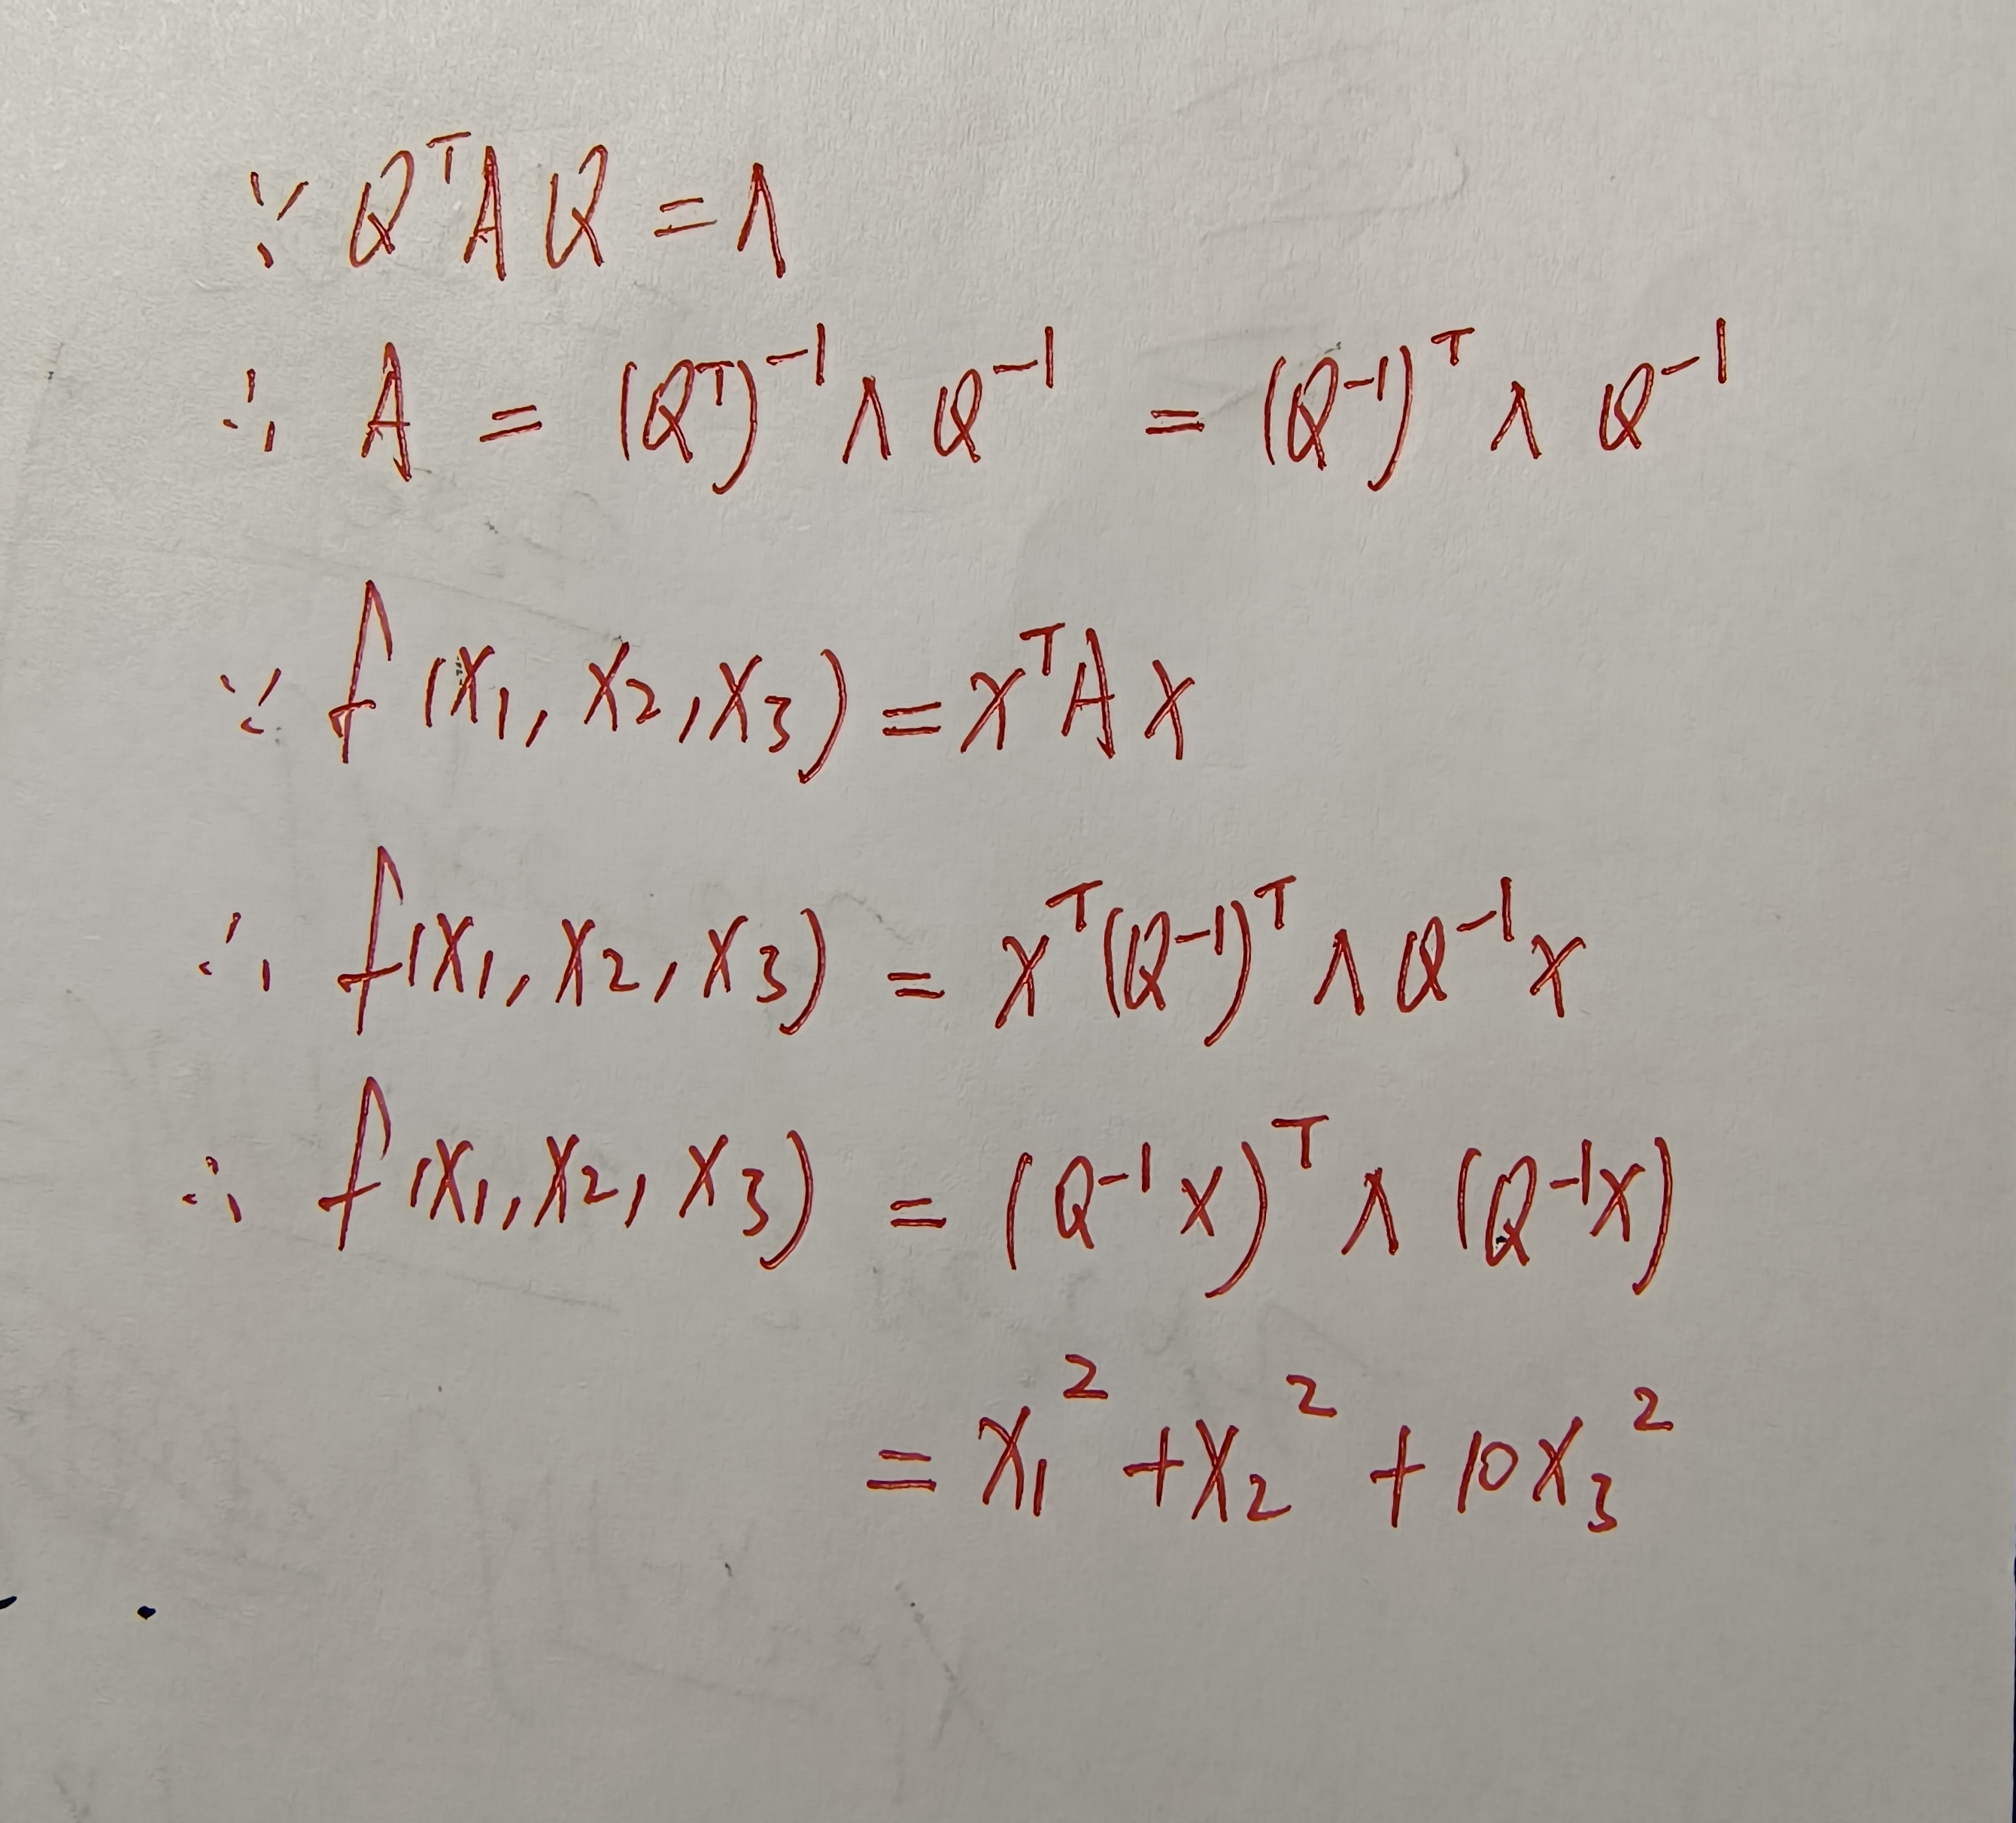 ∵ QᵀAQ = Λ
∴ A = (Qᵀ)⁻¹ Λ Q⁻¹ = (Q⁻¹)ᵀ Λ Q⁻¹
∵ f(x₁, x₂, x₃) = xᵀAx
∴ f(x₁, x₂, x₃) = xᵀ(Q⁻¹)ᵀ Λ Q⁻¹x
∴ f(x₁, x₂, x₃) = (Q⁻¹x)ᵀ Λ (Q⁻¹x)
= x₁² + x₂² + 10x₃²